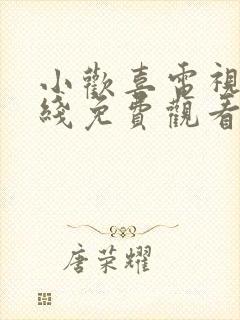 小歡喜電視
綫免費觀看
唐荣耀